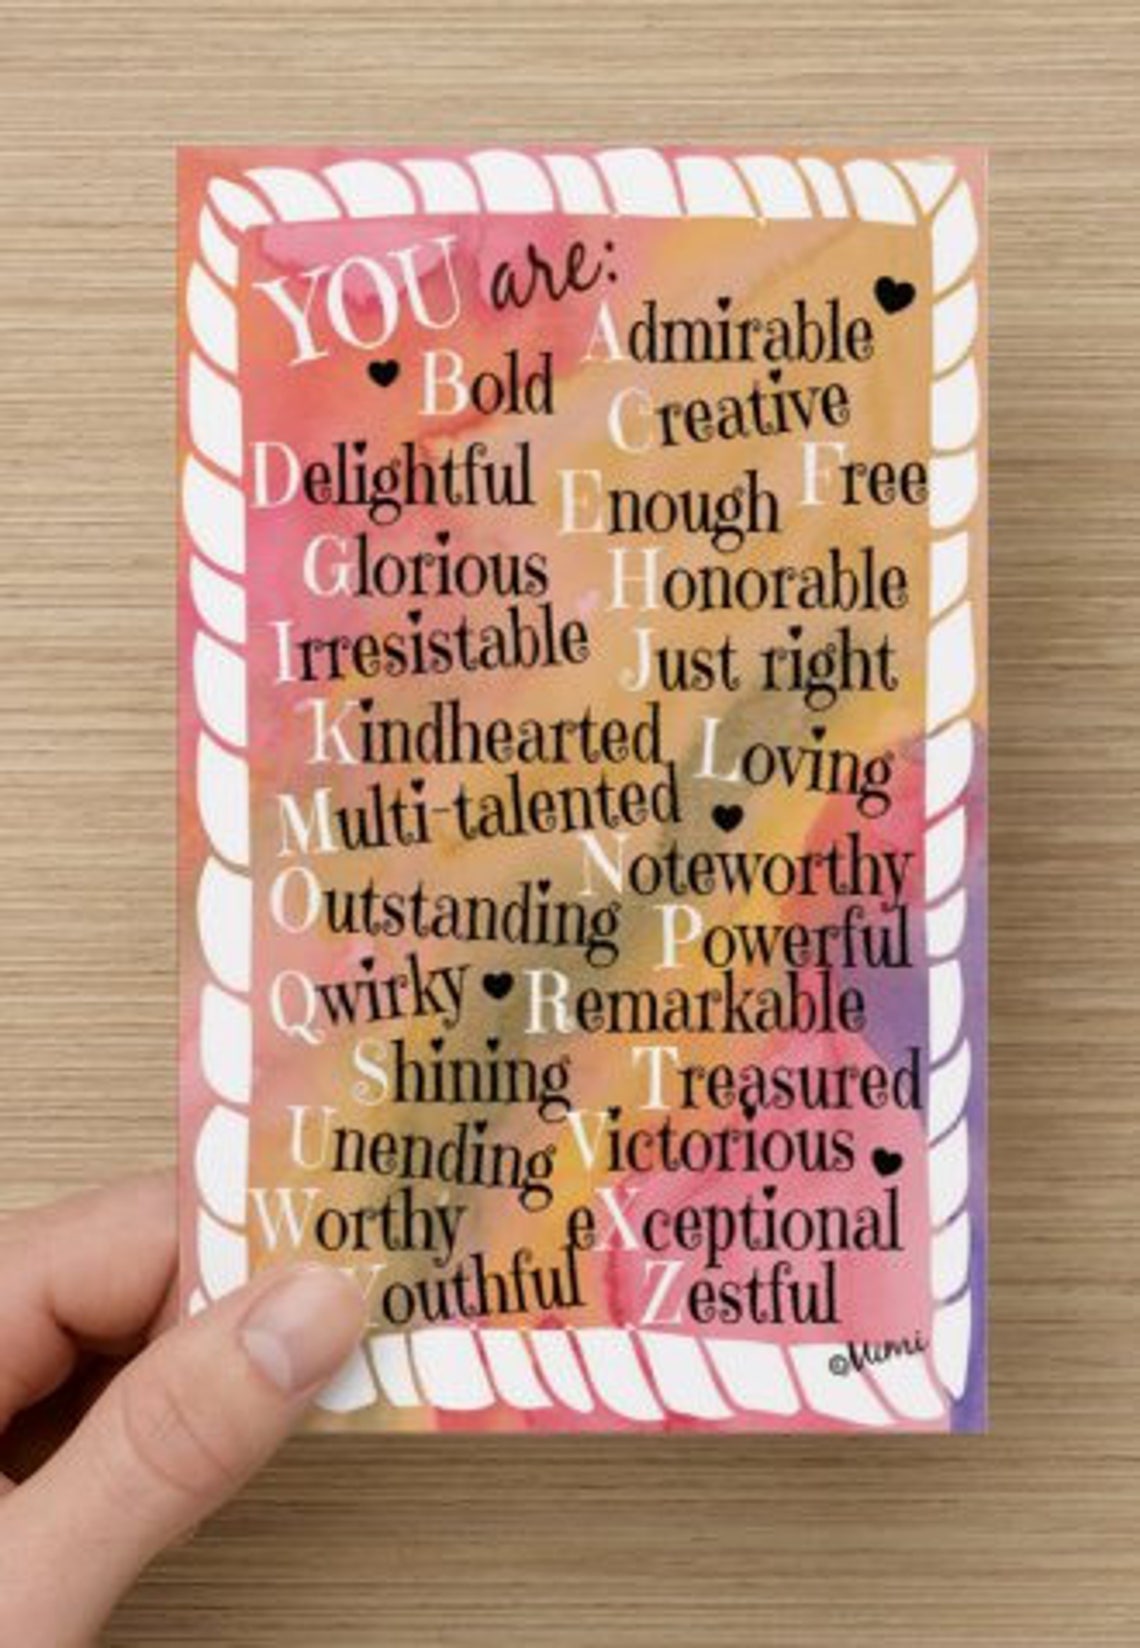 YOU are:
Admirable
Bold
Creative
Delightful
Enough
Free
Glorious
Honorable
Irresistable
Just right
Kindhearted
Loving
Multi-talented
Noteworthy
Outstanding
Powerful
Qwirky
Remarkable
Shining
Treasured
Unending
Victorious
Worthy
eXceptional
Youthful
Zestful
©Mimi